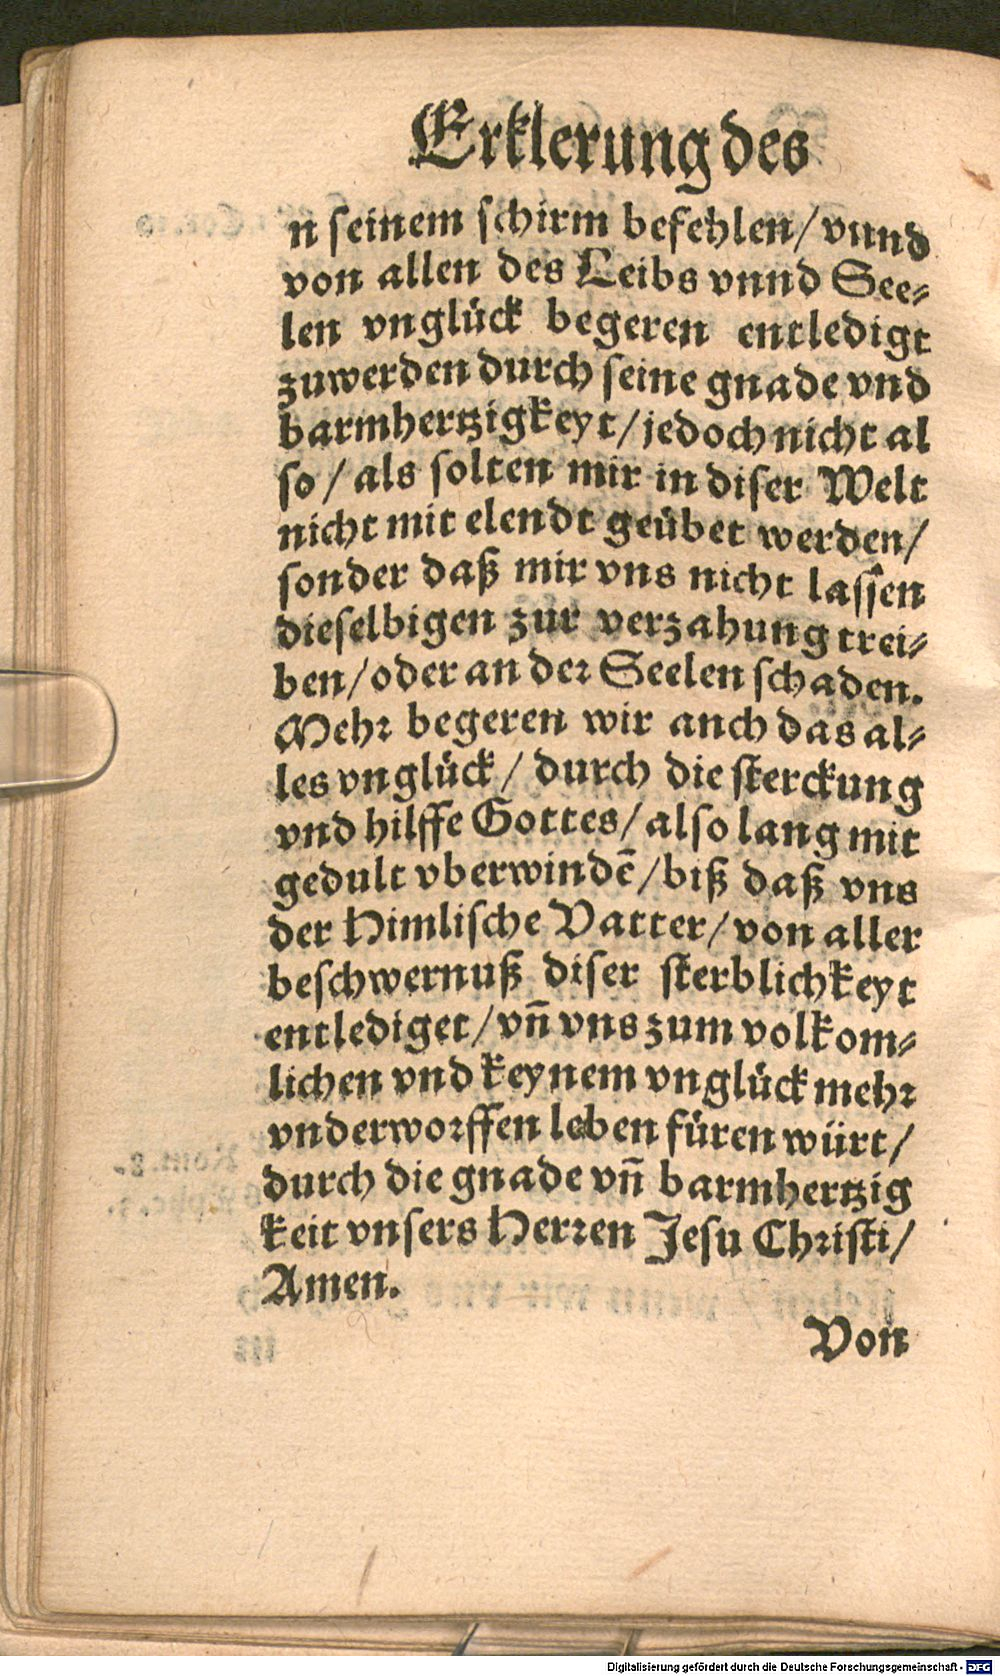 Erklerung des
n seinem schirm befehlen/ vnnd
von allen des Leibs vnnd See⸗
len vnglück begeren entledigt
zuwerden durch seine gnade vnd
barmhertzigkeyt/ jedoch nicht al
so/ als solten mir in diser Welt
nicht mit elendt geübet werden/
sonder daß mir vns nicht lassen
dieselbigen zur verzahung trei⸗
ben/ oder an der Seelen schaden.
Mehr begeren wir anch das al⸗
les vnglück/ durch die sterckung
vnd hilffe Gottes/ also lang mit
gedult vberwindē/ biß daß vns
der Himlische Vatter/ von aller
beschwernuß diser sterblichkeyt
entlediget/ vñ vns zum volkom⸗
lichen vnd keynem vnglück mehr
vnderworffen leben füren würt/
durch die gnade vñ barmhertzig
keit vnsers Herren Jesu Christi/
Amen.
Von
Digitalisierung gefördert durch die Deutsche Forschungsgemeinschaft - DFG